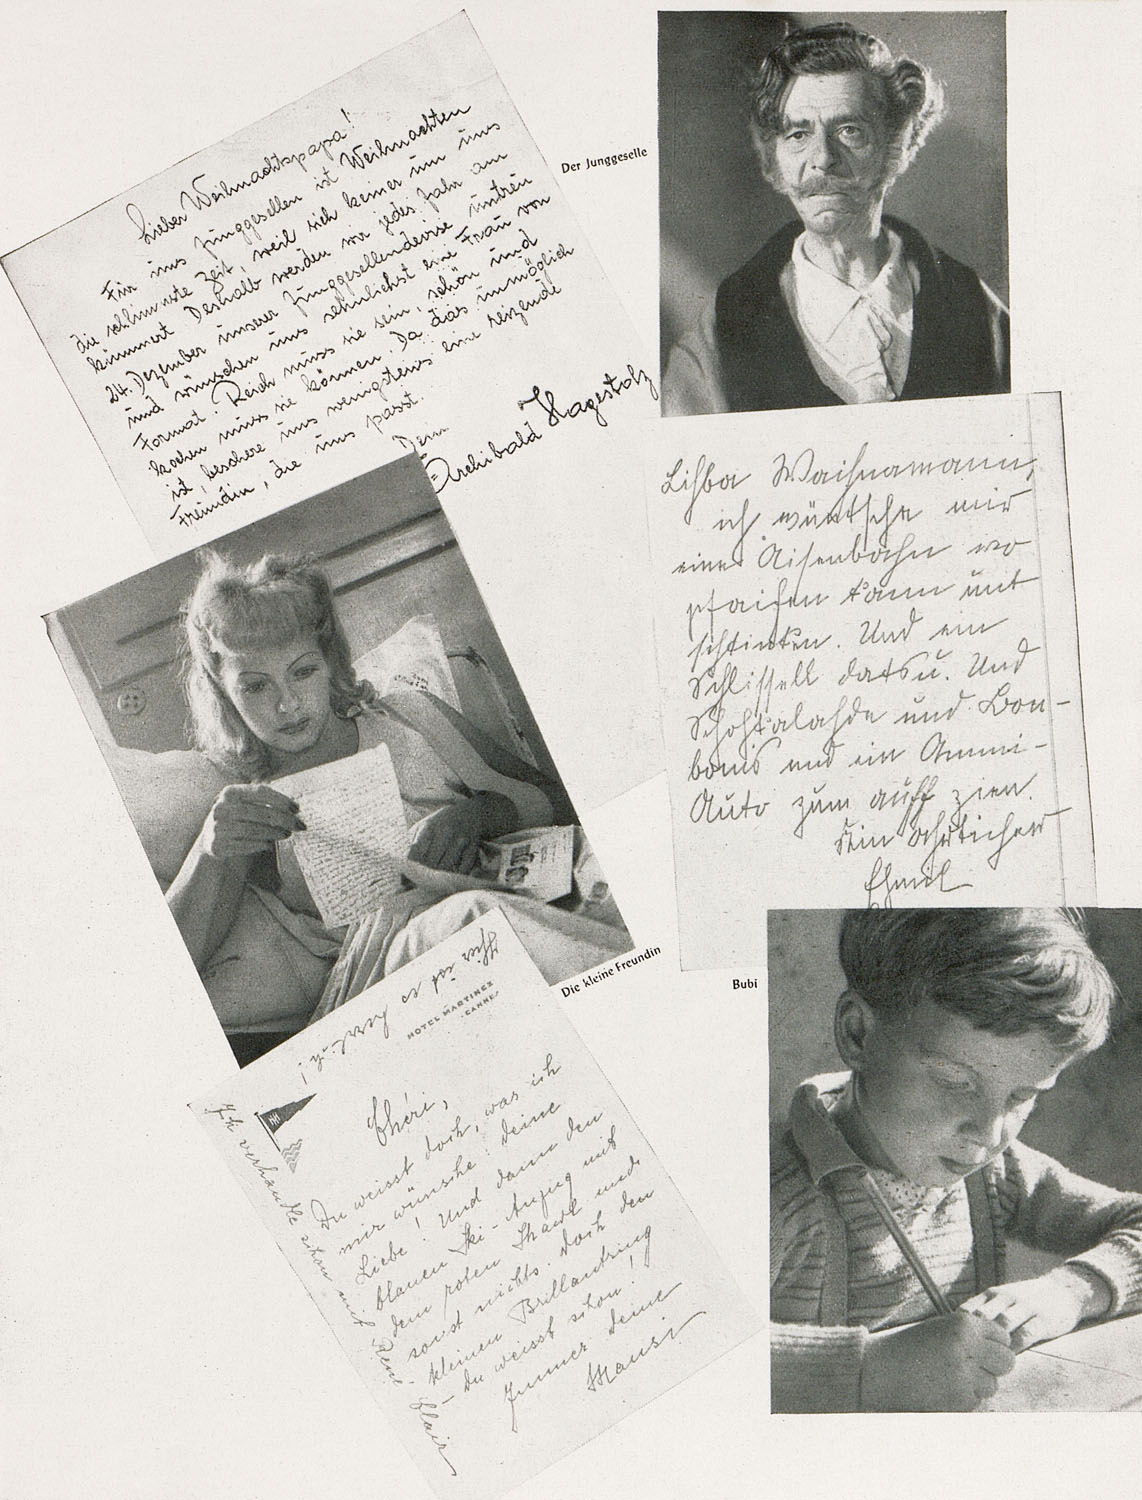 Lieber Weihnachtspapa!
Für uns Junggesellen ist Weihnachten
die schlimmste Zeit, weil sich keiner um uns
kümmert. Deshalb werden wir jedes Jahr am
24. Dezember unserer Junggesellendevise untreu
und wünschen uns sehnlichst eine Frau von
Format. Reich muss sie sein, schön und
kochen muss sie können. Da dies unmöglich
ist, beschere uns wenigstens eine reizende
Freundin, die uns passt.
Dein
Archibald Hagestolz
Der Junggeselle
Lihba Waihnamann,
ich wüntsche mir
eine Aisenbahn wo
pfaifen kann unt
schtinken. Und ein
Schlissell datsu. Und
Schohkalahde und Bon-
bonis und ein Gummi-
Auto zum auff zien.
Dein ährlicher
Ehmil
Bubi
Die kleine Freundin
Hier ist es herrlich!
HOTEL MARTINEZ
CANNES
Chéri,
Du weisst doch, was ich
mir wünsche: Deine
Liebe! Und dann den
blauen Ski-Anzug mit
dem roten Shawl und
sonst nichts. Doch den
kleinen Brillantring
– Du weisst schon!
Immer Deine
Mausi
Ich verhandle schon mit René Clair